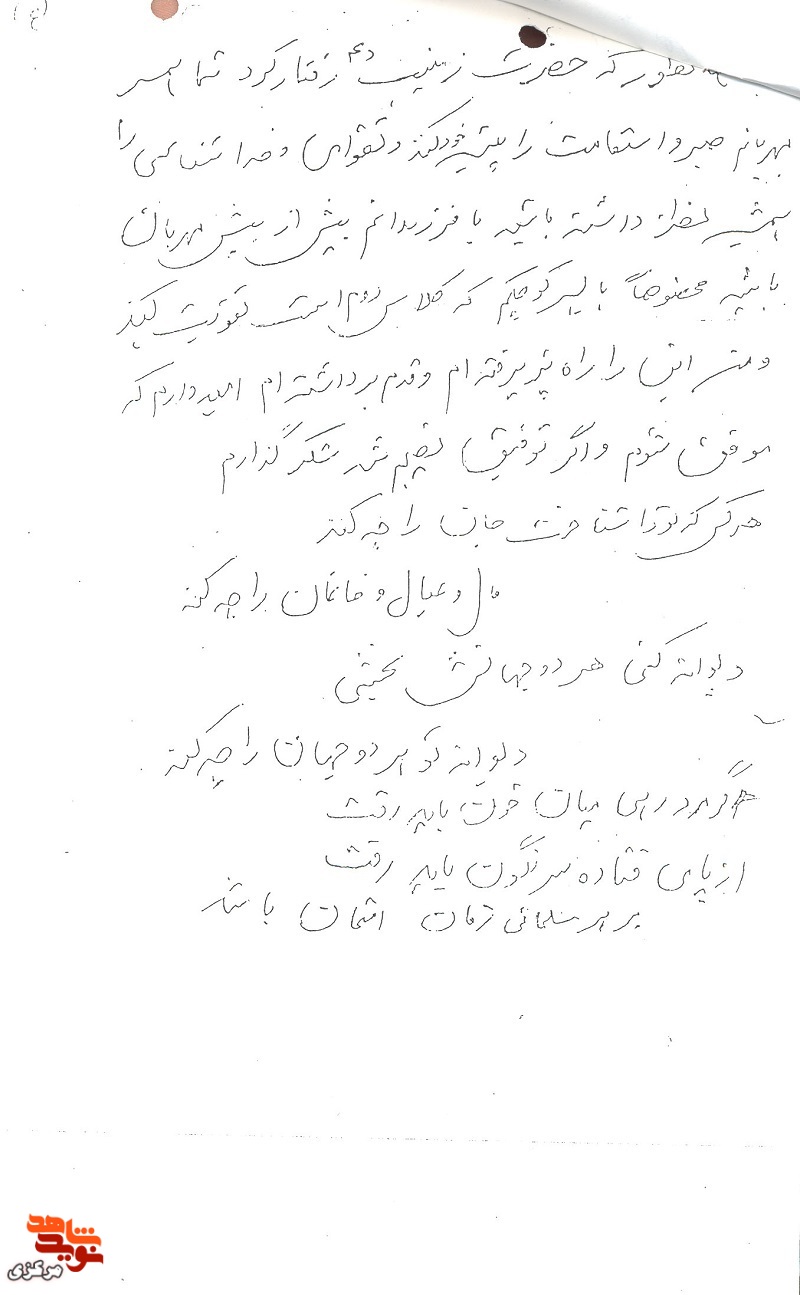 (ع)
همانطور که حضرت زینب (ع) رفتار کرد شما همسر
مهربانم صبر و استقامت را پیشه خود کنید و تقوای و خداشناسی را
همیشه داشته باشید با فرزندانم بیش از بیش مهربان
باشید مخصوصاً با پسر کوچکم که کلاس دوم است تقویت کنید
و من این را راه پذیرفته ام و قدم برداشته ام امیدوارم که
موفق شوم و اگر توفیق نصیبم شد شکر گذارم
هر کس که تو را شناخت جان را چه کند
مال و عیال و خانمان را چه کند
دیوانه کنی هر دو جهانش بخشی
دیوانه تو هر دو جهان را چه کند
گر مرد رهی میان خون باید رفت
از پای فتاده سرنگون باید رفت
بر هر مسلمانی زمان امتحان باشد
نوید شاهد
مرکزی